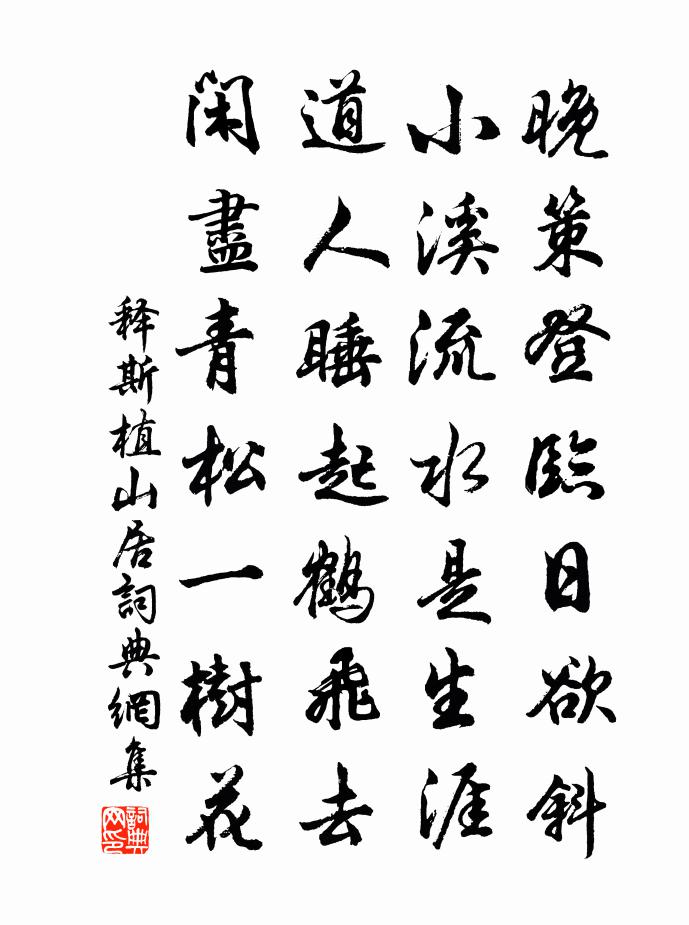 晚策登臨日欲斜
小溪流水是生涯
道人睡起鶴飛去
閑盡青松一樹花
释斯植山居詞典網集
詞典网印